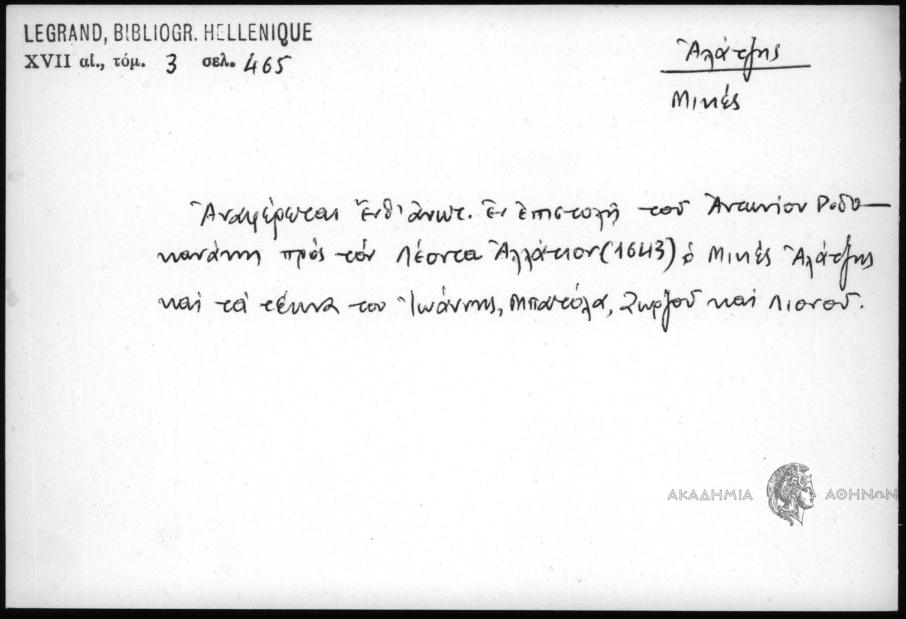 LEGRAND, BIBLIOGR. HELLENIQUE
XVII αἰ., τόμ. 3 σελ. 465
Ἀλάτζης
Μικές
Ἀναφέρεται ἔνθ' ἀνωτ. ἐν ἐπιστολῇ τοῦ Ἀντωνίου Ροδο-
κανάκη πρὸς τὸν Λέοντα Ἀλλάτιον (1643) ὁ Μικές Ἀλάτζης
καὶ τὰ τέκνα του Ἰωάννης, Μπατόλα, Ζωρζοῦ καὶ Λιονοῦ.
ΑΚΑΔΗΜΙΑ ΑΘΗΝΩΝ